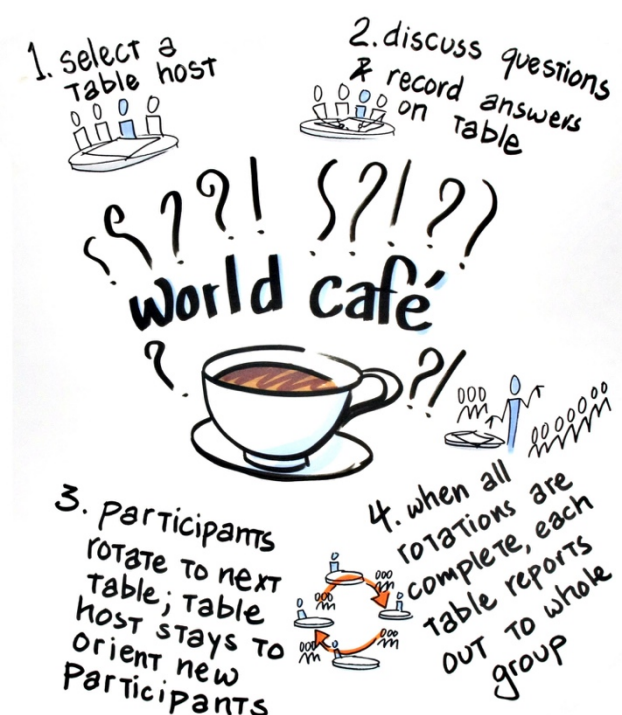 1. select a
Table host
2. discuss questions
& record answers
on Table
? ? ! ? ! ? ?
world café
? ? !
3. participants
rotate to next
Table; Table
host stays to
orient new
participants
4. when all
rotations are
complete, each
Table reports
out to whole
group